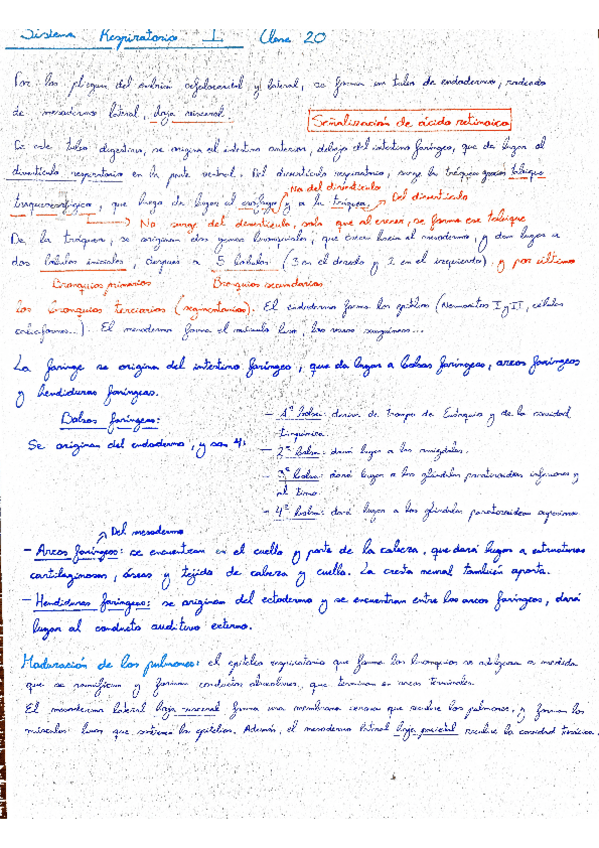 Sistema Respiratorio I Clase 20
Por los pliegues del embrión cefalocaudal y lateral, se forma un tubo de endodermo, rodeado
de mesodermo lateral, hoja visceral.
Señalización de ácido retinoico
En este tubo digestivo, se origina el intestino anterior, debajo del intestino faríngeo, que da lugar al
divertículo respiratorio en la parte ventral. Del divertículo respiratorio, surge la tráquea gracias tabique
No del divertículo
Del divertículo
traqueoesofágico, que luego da lugar al esófago y a la tráquea.
No surge del divertículo, sola que al crecer, se forma ese tabique
De la tráquea, se originan dos yemas bronquiales, que crecen hacia el mesodermo, y dan lugar a
dos lóbulos iniciales, después a 5 lóbulos (3 en el derecho y 2 en el izquierdo) y por último
Bronquios primarios Bronquios secundarios
los bronquios terciarios (segmentarios). El endodermo forma los epitelios (Neumocitos I y II, células
caliciformes...). El mesodermo forma el músculo liso, los vasos sanguíneos...
La faringe se origina del intestino faríngeo, que da lugar a bolsas faríngeas, arcos faríngeos
y hendiduras faríngeas.
Bolsas faríngeas:
Se originan del endodermo, y son 4:
- 1ª bolsa: deriva de Trompa de Eustaquio y de la cavidad
timpánica.
- 2ª bolsa: dará lugar a las amígdalas.
- 3ª bolsa: dará lugar a las glándulas paratiroideas inferiores y
al timo.
- 4ª bolsa: dará lugar a las glándulas paratiroideas superiores.
Del mesodermo
- Arcos faríngeos: se encuentran en el cuello y parte de la cabeza, que dará lugar a estructuras
cartilaginosas, óseas y tejido de cabeza y cuello. La cresta neural también aporta.
- Hendiduras faríngeas: se originan del ectodermo y se encuentran entre los arcos faríngeos, dará
lugar al conducto auditivo externo.
Maduración de los pulmones: el epitelio respiratorio que forma los bronquios se adelgaza a medida
que se ramifican y forman conductos alveolares, que terminan en sacos terminales.
El mesodermo lateral hoja visceral forma una membrana serosa que recubre los pulmones, y forman los
músculos lisos que sostienen los epitelios. Además, el mesodermo lateral hoja parietal recubre la cavidad torácica.